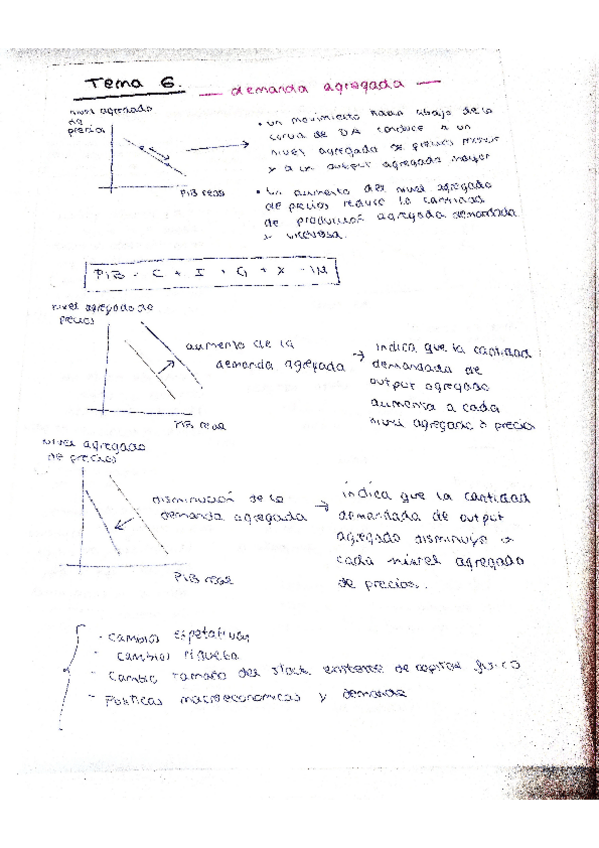 Tema 6. — demanda agregada —
nivel agregado
de
precios
PiB real
• un movimiento hacia abajo de la
curva de DA conduce a un
nivel agregado de precios menor
y a un output agregado mayor
• Un aumento del nivel agregado
de precios reduce la cantidad
de producción agregada demandada
y viceversa.
PiB = C + I + G + X - IM
nivel agregado de
precios
aumento de la
demanda agregada
PiB real
→ indica que la cantidad
demandada de
output agregado
aumenta a cada
nivel agregado d precio
nivel agregado
de precios
disminución de la
demanda agregada
PiB real
→ indica que la cantidad
demandada de output
agregado disminuye a
cada nivel agregado
de precios.
- cambios espetativas
- cambios riqueza
- Cambio tamaño del stock existente de capital fisico
- Politicas macroeconomicas y demanda